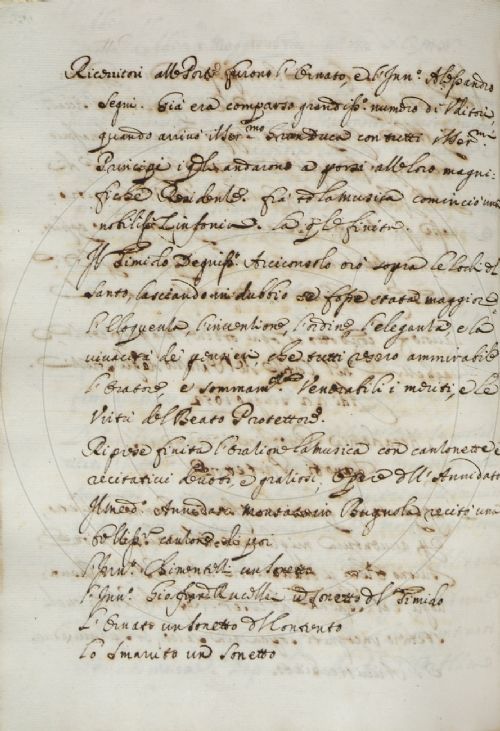 Riceuitori alle Porte furono l'Ornato, e l'Inn.º Alessandro
Segni. Già era comparso grandiss.º numero di Vditori,
quando arriuò il Ser.mo Granduca con tutti i Ser.mi
Principi i q.li andarono a porsi alle loro magni-
fiche Residenze. fra tãto la musica cominciò una
nobiliss.ª Sinfonia. la q.le finita.
Il Timido Degniss.º Arciconsolo orò sopra le lodi del
Santo, lasciando in dubbio se fosse stata maggiore
l'Eloquenza, l'inuentione, l'ordine, l'eleganza e la
viuacità de' pensieri, che tutti resero ammirabile
l'Oratore, e sommam.te Venerabili i meriti, e le
Virtù del Beato Protettore.
Riprese finita l'oratione la musica con canzonette e
recitatiui deuoti, e graziosi, opere dell'Annidato
Il med.º Annidato recitò una
belliss.ª canzone di poi
l'Inn.º Chimentelli un sonetto
l'Inn.º Gio: Rucellai un sonetto del Timido
L'Ornato un sonetto del Contento
Lo Smarrito un sonetto